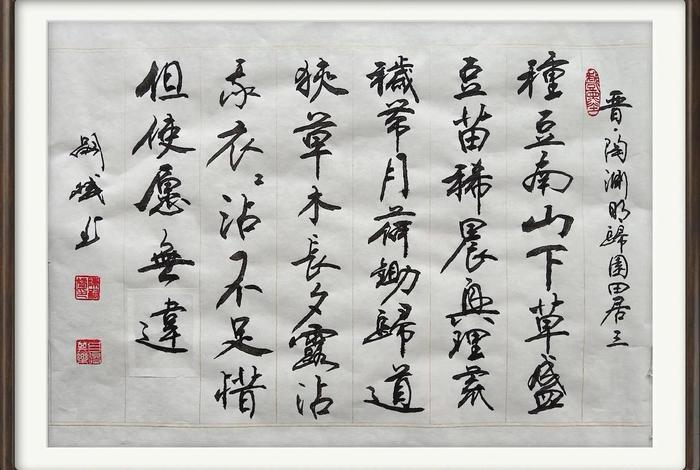 晋·陶渊明歸園田居三
種豆南山下草盛
豆苗稀晨興理荒
穢帶月荷鋤歸道
狹草木長夕露沾
我衣〻沾不足惜
但使愿無違